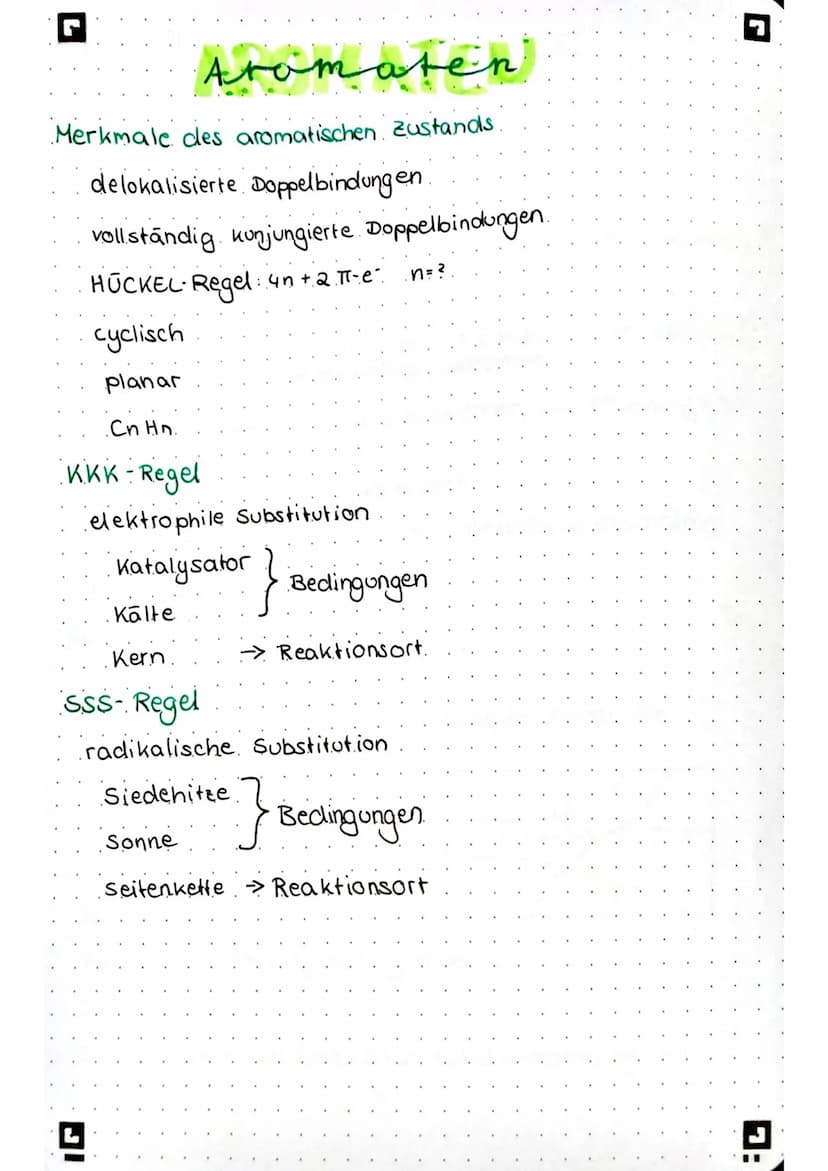 Aromaten
Merkmale des aromatischen Zustands
delokalisierte Doppelbindungen
vollständig konjungierte Doppelbindungen
HÜCKEL-Regel: 4n + 2 π-e⁻ n=?
cyclisch
planar
Cn Hn
KKK-Regel
elektrophile Substitution
Katalysator } Bedingungen
Kälte
Kern → Reaktionsort
SSS-Regel
radikalische Substitution
Siedehitze } Bedingungen
Sonne
Seitenkette → Reaktionsort